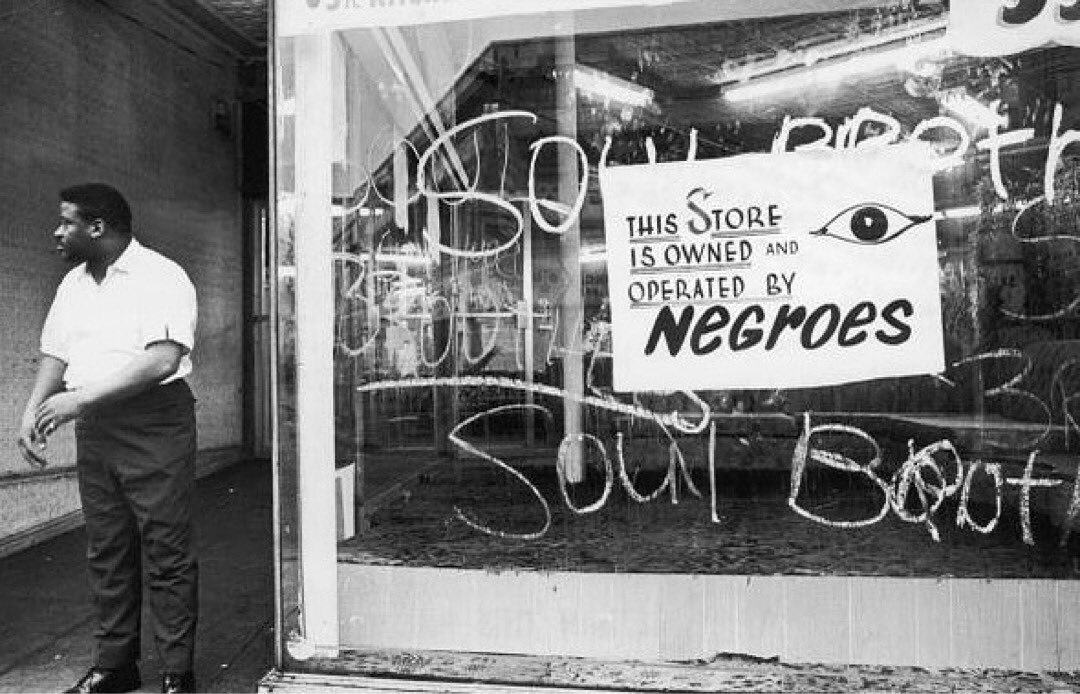 Soul Broth
THIS STORE
IS OWNED AND
OPERATED BY
NEGROES
Soul Broth